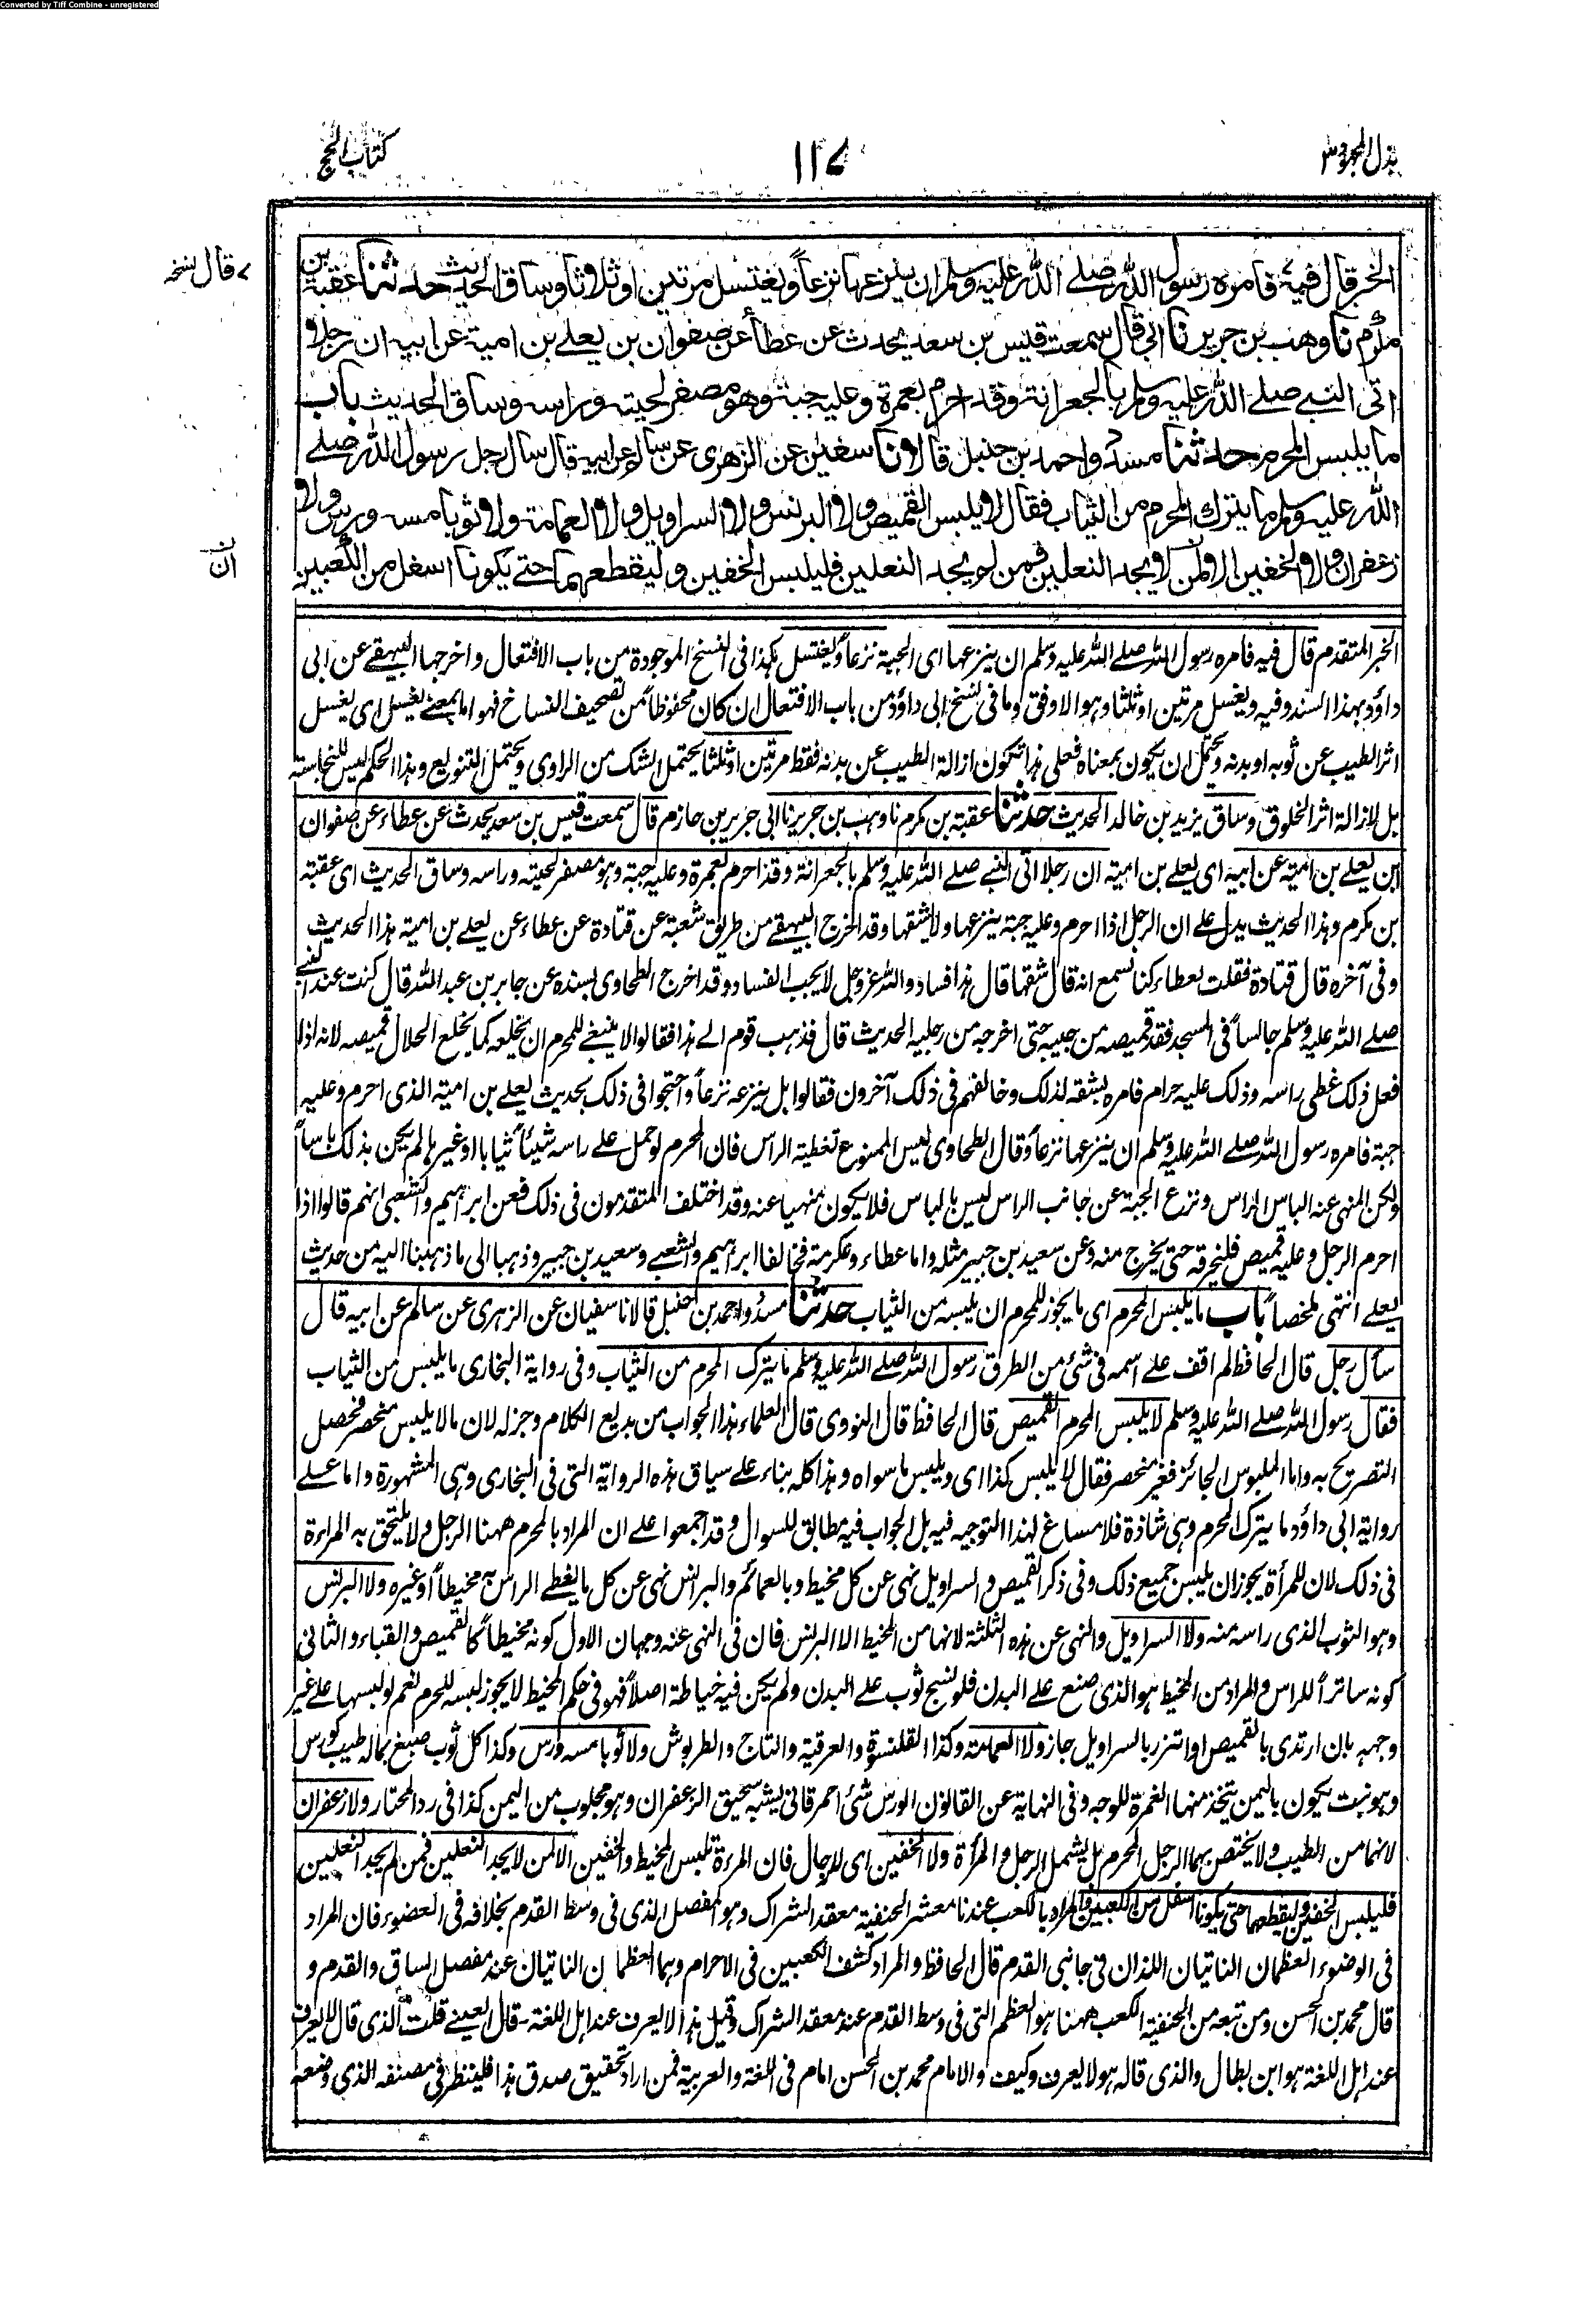 Converted by Tiff Combine - unregistered
بذل المجهود ٣
١١٧
كتاب الحج
الخبر قال فيه فامره رسول الله صلے الله عليه وسلم ان ينزعها نزعاً ويغتسل مرتين او ثلاثا وساق الحديث حدثنا عقبة بن
> قال نسخه
مكرم نا وهب بن جرير نا ابي قال سمعت قيس بن سعد يحدث عن عطاء عن صفوان بن يعلے بن امية عن ابيه ان رجلا
اتى النبي صلے الله عليه وسلم بالجعرانة وقد احرم بعمرة وعليه جبة وهو مصفر لحيته وراسه وساق الحديث باب
ما يلبس المحرم حدثنا مسدد واحمد بن حنبل قالا نا سفيٰن عن الزهرى عن سالم عن ابيه قال سال رجل رسول الله صلے
الله عليه وسلم ما يترك المحرم من الثياب فقال لا يلبس القميص ولا البرنس ولا السراويل ولا العمامة ولا ثوبا مسه ورس ولا
زعفران ولا الخفين الا لمن لا يجد النعلين فمن لم يجد النعلين فليلبس الخفين وليقطعهما حتے يكونا اسفل من الكعبين
ان
الخبر المتقدم قال فيه فامره رسول الله صلے الله عليه وسلم ان ينزعها اى الجبة نزعاً ويغتسل هكذا فى النسخ الموجودة من باب الافتعال واخرجها البيهقے عن ابى
داؤد بهذا السند وفيه ويغسل مرتين او ثلثا وهو الاوفق وما فى نسخ ابى داؤد من باب الافتعال ان كان محفوظاً من تصحيف النساخ فهو اما بمعنے يغسل اى يغسل
اثر الطيب عن ثوبه او بدنه ويحتمل ان يكون بمعناه فعلى هذا تكون ازالة الطيب عن بدنه فقط مرتين او ثلثا يحتمل الشك من الراوى ويحتمل التنويع وهذا الحكم ليس للنجاسة
بل لازالة اثر الخلوق وساق يزيد بن خالد الحديث حدثنا عقبة بن مكرم نا وهب بن جرير نا ابى جرير بن حازم قال سمعت قيس بن سعد يحدث عن عطاء عن صفوان
ابن يعلے بن امية عن ابيه اى يعلے بن امية ان رجلا اتى النبے صلے الله عليه وسلم بالجعرانة وقد احرم بعمرة وعليه جبة وهو مصفر لحيته وراسه وساق الحديث اى عقبة
بن مكرم وهذا الحديث يدل علے ان الرجل اذا احرم وعليه جبة ينزعها ولا يشقها وقد اخرج البيهقے من طريق شعبة عن قتادة عن عطاء عن يعلے بن امية هذا الحديث
وفى آخره قال قتادة فقلت لعطاء كنا نسمع انه قال شقها قال هذا فساد والله عز وجل لا يحب الفساد وقد اخرج الطحاوى بسنده عن جابر بن عبد الله قال كنت عند النبے
صلے الله عليه وسلم جالساً فى المسجد فقد قميصه من جيبه حتى اخرجه من رجليه الحديث قال فذهب قوم الے هذا فقالوا لا ينبغے للمحرم ان يخلعه كما يخلع الحلال قميصه لانه اذا
فعل ذلك غطى راسه وذلك عليه حرام فامره بشقه لذلك وخالفهم فى ذلك آخرون فقالوا بل ينزعه نزعاً واحتجوا فى ذلك بحديث يعلے بن امية الذى احرم وعليه
جبة فامره رسول الله صلے الله عليه وسلم ان ينزعها نزعاً وقال الطحاوى ليس الممنوع تغطية الراس فان المحرم لو حمل علے راسه شيئاً ثيابا او غيرها لم يكن بذلك باساً
ولكن المنهى عنه الباس الراس ونزع الجبة عن جانب الراس ليس بالباس فلا يكون منهيا عنه وقد اختلف المتقدمون فى ذلك فعن ابراهيم والشعبى انهم قالوا اذا
احرم الرجل وعليه قميص فليخرقه حتى يخرج منه وعن سعيد بن جبير مثله واما عطاء وعكرمة فخالفا ابراهيم والشعبے وسعيد بن جبير وذهبا الى ما ذهبنا اليه من حديث
يعلے انتهى ملخصاً باب ما يلبس المحرم اى ما يجوز للمحرم ان يلبسه من الثياب حدثنا مسدد واحمد بن حنبل قالا نا سفيان عن الزهرى عن سالم عن ابيه قال
سأل رجل قال الحافظ لم اقف علے اسمه فى شئ من الطرق رسول الله صلے الله عليه وسلم ما يترك المحرم من الثياب وفى رواية البخارى ما يلبس من الثياب
فقال رسول الله صلے الله عليه وسلم لا يلبس المحرم القميص قال الحافظ قال النووى قال العلماء هذا الجواب من بديع الكلام وجزله لان ما لا يلبس منحصر فحصل
التصريح به واما الملبوس الجائز فغير منحصر فقال لا يلبس كذا اى ويلبس ما سواه وهذا كله بناء علے سياق هذه الرواية التى فى البخارى وهى المشهورة واما علے
رواية ابى داؤد ما يترك المحرم وهى شاذة فلا مساغ لهذا التوجيه فيه بل الجواب فيه مطابق للسوال وقد اجمعوا علے ان المراد بالمحرم ههنا الرجل ولا يلتحق به المراءة
فى ذلك لان للمرأة يجوز ان يلبس جميع ذلك وفى ذكر القميص والسراويل نهى عن كل مخيط وبالعمائم والبرانس نهى عن كل ما يغطے الراس به مخيطاً او غيره ولا البرنس
وهو الثوب الذى راسه منه ولا السراويل والنهى عن هذه الثلثة لانها من المخيط الا البرنس فان فى النهى عنه وجهان الاول كونه مخيطاً كالقميص والقباء والثانى
كونه ساتراً للراس والمراد من المخيط هو الذى صنع علے البدن فلو نسج ثوب علے البدن ولم يكن فيه خياطة اصلاً فهو فى حكم المخيط لا يجوز لبسه للمحرم نعم لو لبسها علے غير
وجهه بان ارتدى بالقميص او اتزر بالسراويل جاز ولا العمامة وكذا القلنسوة والعرقية والتاج والطربوش ولا ثوبا مسه ورس وكذا كل ثوب صبغ بماله طيب كورس
وهو نبت يكون باليمن يتخذ منها الغمرة للوجه وفى النهاية عن القانون الورس شئ احمر قانى يشبه سحيق الزعفران وهو مجلوب من اليمن كذا فى رد المحتار ولا زعفران
لانهما من الطيب ولا يختص بهما الرجل المحرم بل يشمل الرجل والمرأة ولا الخفين اى للرجال فان المرءة تلبس المخيط والخفين الا لمن لا يجد النعلين فمن لم يجد النعلين
فليلبس الخفين وليقطعهما حتى يكونا اسفل من الكعبين والمراد بالكعب عندنا معشر الحنفية معقد الشراك وهو المفصل الذى فى وسط القدم بخلافه فى الوضوء فان المراد
فى الوضوء العظمان الناتيان اللذان فى جانبى القدم قال الحافظ والمراد كشف الكعبين فى الاحرام وهما العظمان الناتيان عند مفصل الساق والقدم و
قال محمد بن الحسن ومن تبعه من الحنفية الكعب ههنا هو العظم التى فى وسط القدم عند معقد الشراك وقيل هذا لا يعرف عند اهل اللغة - قال العينے قلت الذى قال لا يعرف
عند اهل اللغة هو ابن بطال والذى قاله هو لا يعرف وكيف والامام محمد بن الحسن امام فى اللغة والعربية فمن اراد تحقيق صدق هذا فلينظر فى مصنفه الذى وضعه